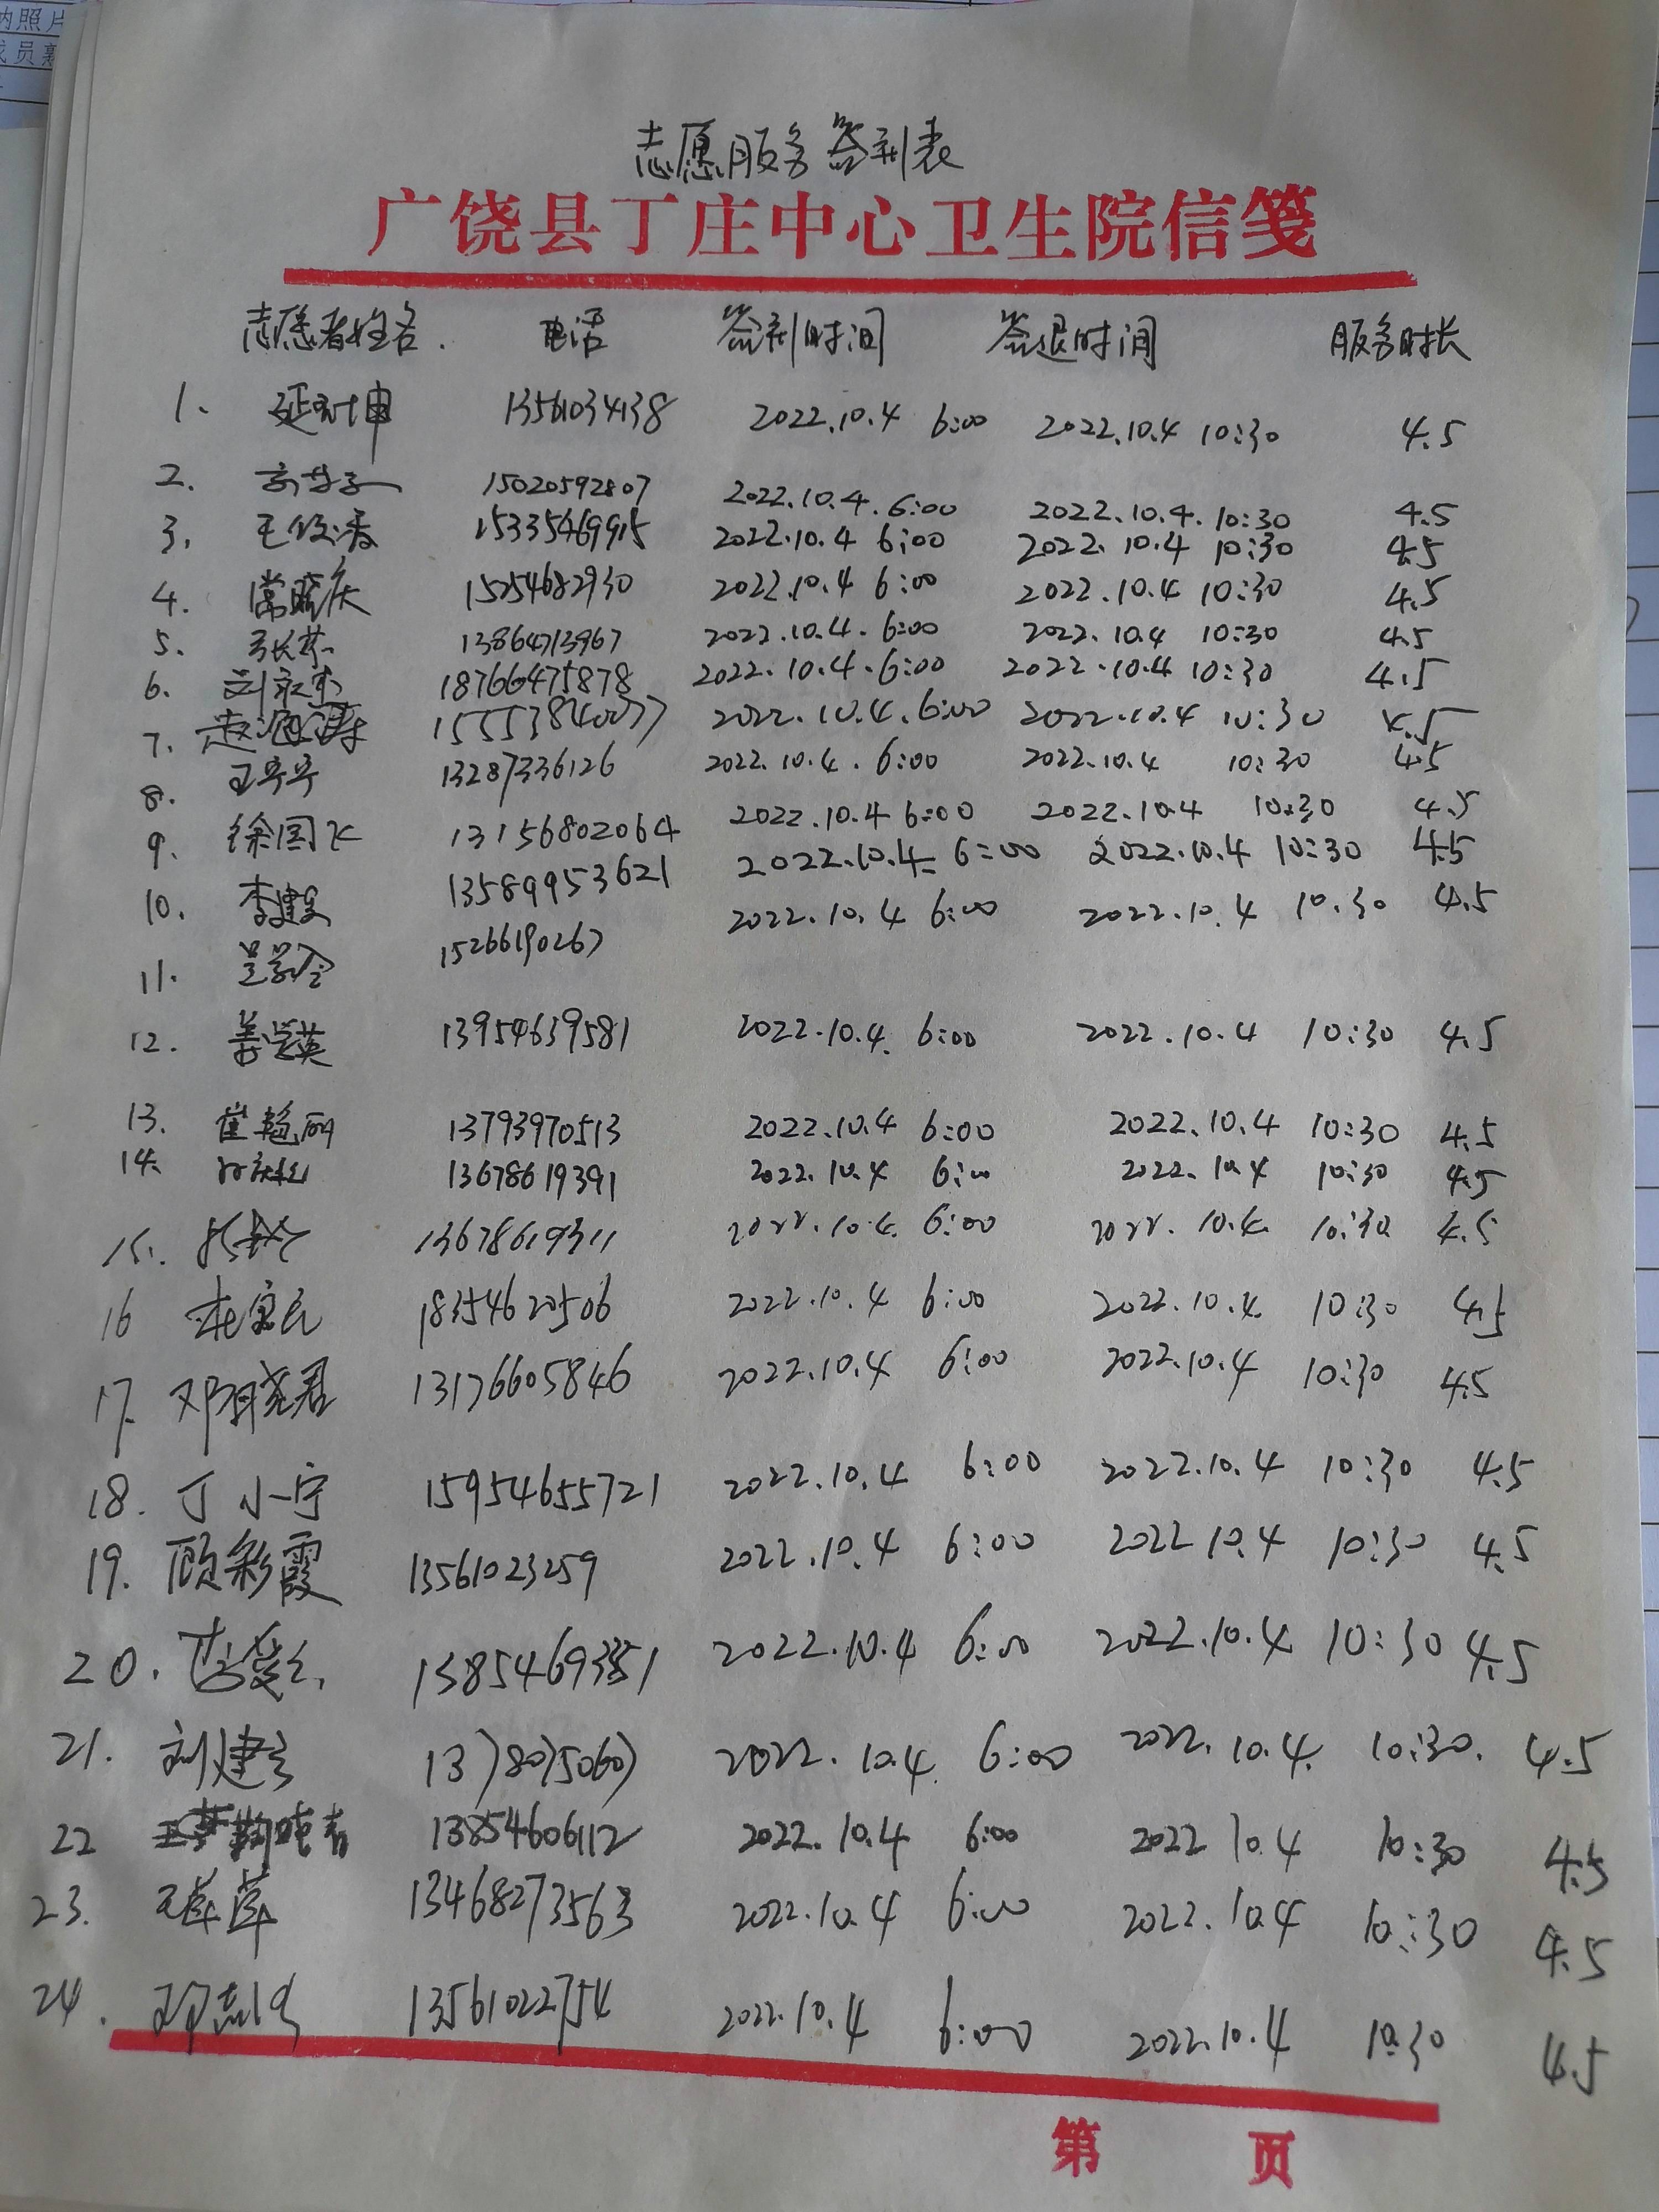 纳照片
成员亲
志愿服务签到表
广饶县丁庄中心卫生院信笺
志愿者姓名. 电话 签到时间 签退时间 服务时长
1. 延对坤 13561034138 2022.10.4 6:00 2022.10.4 10:30 4.5
2. 15020592807 2022.10.4. 6:00 2022.10.4. 10:30 4.5
3. 王俊香 15335469915 2022.10.4 6:00 2022.10.4 10:30 4.5
4. 常晓庆 15254682930 2022.10.4 6:00 2022.10.4 10:30 4.5
5. 13864713967 2022.10.4. 6:00 2022.10.4 10:30 4.5
6. 刘永杰 18766475878 2022.10.4. 6:00 2022.10.4 10:30 4.5
7. 赵 15553840077 2022.10.4. 6:00 2022.10.4 10:30 4.5
8. 王宁宁 13287336126 2022.10.4. 6:00 2022.10.4 10:30 4.5
9. 徐国飞 13156802064 2022.10.4 6:00 2022.10.4 10:30 4.5
10. 李建 13589953621 2022.10.4 6:00 2022.10.4 10:30 4.5
11. 15266190267 2022.10.4 6:00 2022.10.4 10:30 4.5
12. 姜学英 13954639581 2022.10.4. 6:00 2022.10.4 10:30 4.5
13. 崔艳丽 13793970513 2022.10.4 6:00 2022.10.4 10:30 4.5
14. 13678619391 2022.10.4 6:00 2022.10.4 10:30 4.5
15. 13678619311 2022.10.4. 6:00 2022.10.4. 10:30 4.5
16 杜宝民 18354620506 2022.10.4 6:00 2022.10.4. 10:30 4.5
17. 邓晓君 13176605846 2022.10.4 6:00 2022.10.4 10:30 4.5
18. 丁小宁 15954655721 2022.10.4 6:00 2022.10.4 10:30 4.5
19. 顾彩霞 13561023259 2022.10.4 6:00 2022 10.4 10:30 4.5
20. 13854693351 2022.10.4 6:00 2022.10.4 10:30 4.5
21. 刘建 13780750607 2022.10.4. 6:00 2022.10.4. 10:30. 4.5
22 13854606112 2022.10.4 6:00 2022 10.4 10:30 4.5
23. 王萍萍 13468273563 2022.10.4 6:00 2022.10.4 10:30 4.5
24. 13561022754 2022.10.4 6:00 2022.10.4 10:30 4.5
第 页